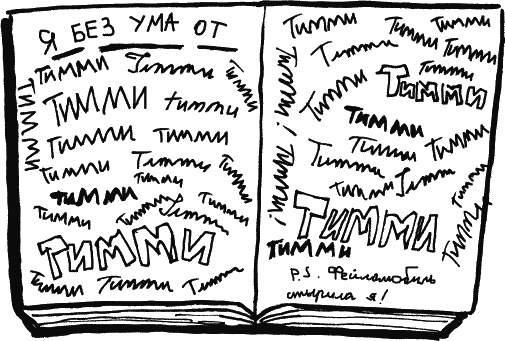 Я БЕЗ УМА ОТ
ТИММИ Тимми Тимми
ТИММИ
ТИММИ тимми
ТИММИ ТИММИ
Тимми Тимми Тимми
Тимми
ТИММИ
Тимми Тимми Тимми Тимми
ТИММИ
Тимми Тимми Тимми
Тимми Тимми Тимми
Тимми Тимми
Тимми
Тимми! Тимми!
Тимми ТИММИ
ТИММИ
Тимми Тимми Тимми
Тимми Тимми
Тимми
ТИММИ
Тимми
ТИММИ
P.S. Фейламобиль
стырила я!